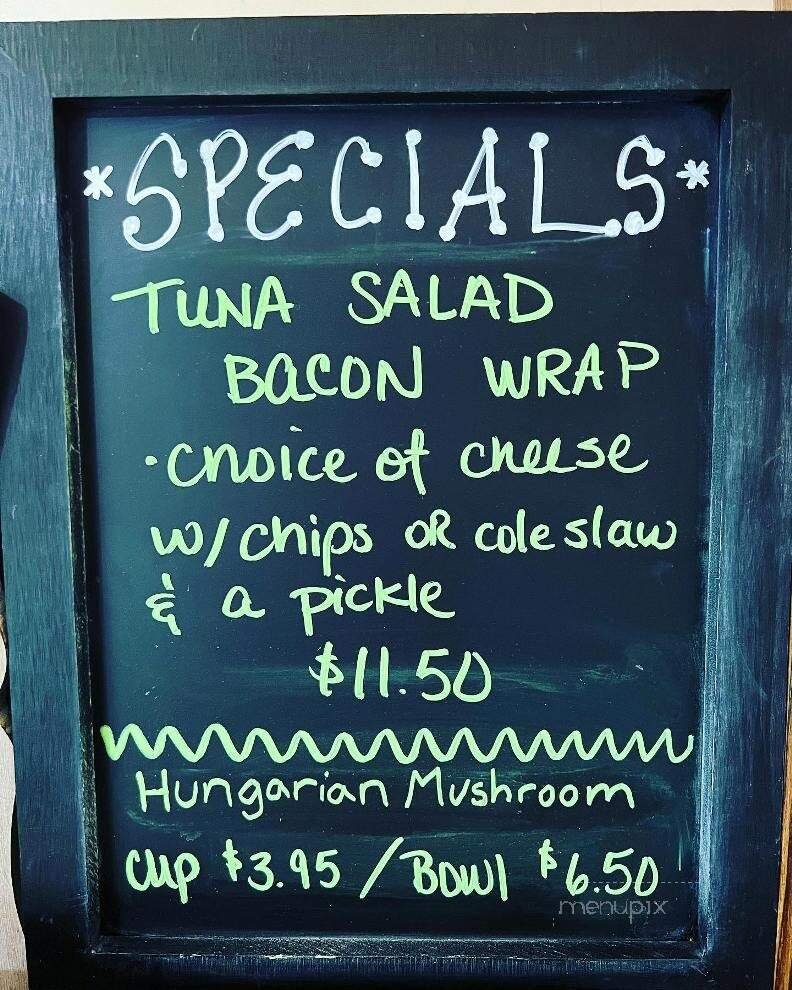 *SPECIALS*
TUNA SALAD
BACON WRAP
·choice of cheese
w/chips OR coleslaw
& a pickle
$11.50
Hungarian Mushroom
Cup $3.95 / Bowl $6.50
menupix